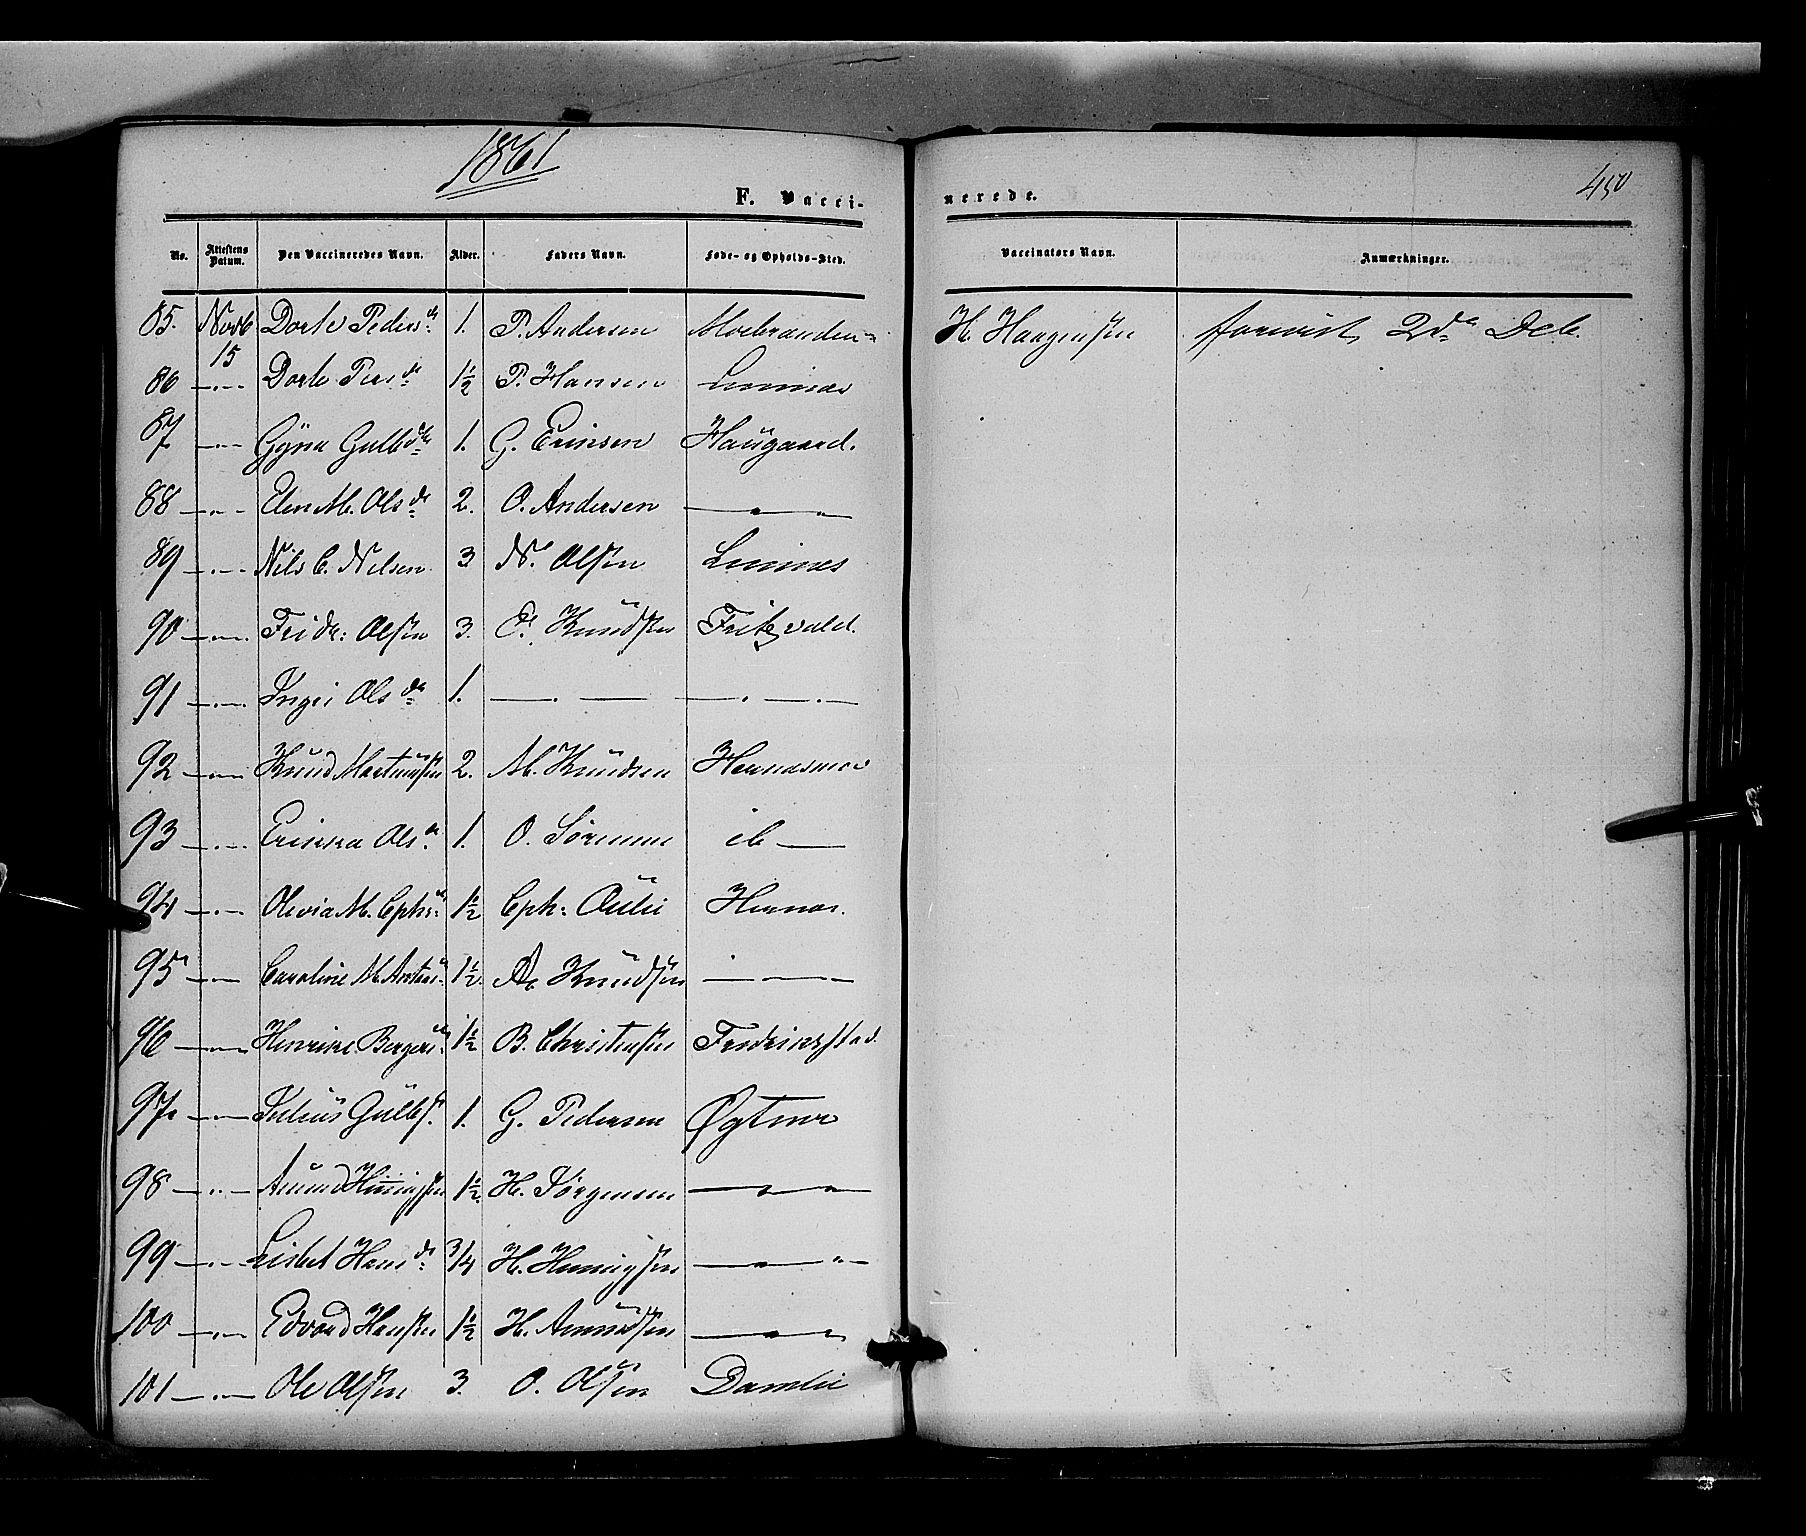 1861
450
F. Vacci-
nerede.
No. Attestens Datum. Den Vaccineredes Navn. Alder. Faders Navn. Føde- og Opholds-Sted. Vaccinators Navn. Anmærkninger.
85. Novb 15 Dorte Peders dr 1. P. Andersen H. Haagensen forevist 2den Deb.
86 —.— Dorte Pers dr 1½ P. Hansen
87 —.— Gyna Gulbdtr 1. G. Eriksen Haugaard.
88 —.— Elen M. Ols dr 2. O. Andersen —„—
89 —.— Nils C. Nilsen 3 N. Olsen
90 —.— Fridr: Olsen 3. O. Knudsen Fritzvold.
91 —.— Inger Ols dr 1. —.— —.—.—
92 —.— Knud Martinsen 2. M. Knudsen
93 —.— Erikka Ols dr 1. O. Sørensen ib —
94 —.— Olivia M. Ephr: 1½ Eph:
95 —.— Caroline M. Antons: 1½ A. Knudsen .— — —
96 —.— Henrikke Bergers: 1½ B. Christensen Fredrikstad.
97. —.— Julius Gulbs. 1. G. Pedersen
98 —.— Amund Henningsen 1½ H. Jørgensen —„—
99 —.— Lisbet Hans dr 3/4 H. Henningsen —„—
100 —.— Edvard Hansen 1½ H. Amundsen —„—
101 —.— Ole Olsen 3. O. Olsen Damlie